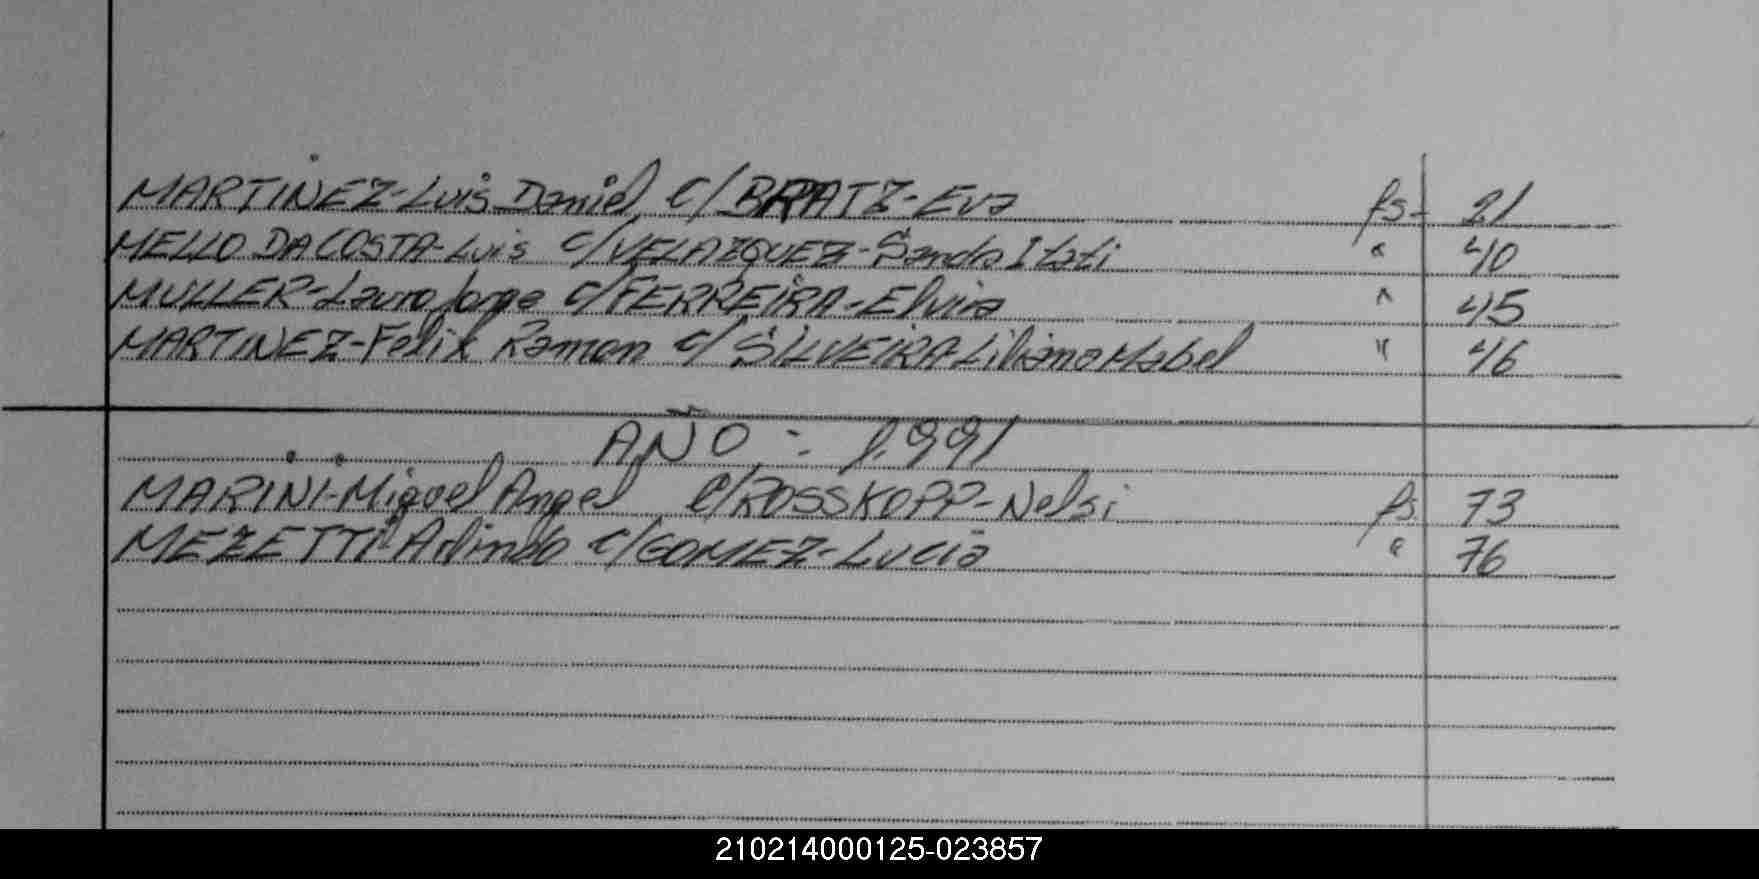 MARTINEZ-Luis Daniel c/BRATZ-Eva fs- 21
MELLO DA COSTA-Luis c/VELAZQUEZ-Sandra Itati " 40
MULLER-Lauro Jorge c/FERREIRA-Elvira " 45
MARTINEZ-Felix Ramon c/SILVEIRA-Liliana Mabel " 46
AÑO: 1.991
MARINI-Miguel Angel c/ROSSKOPP-Nelsi fs. 73
MEZETTI-Arlindo c/GOMEZ-Lucia " 76
210214000125-023857